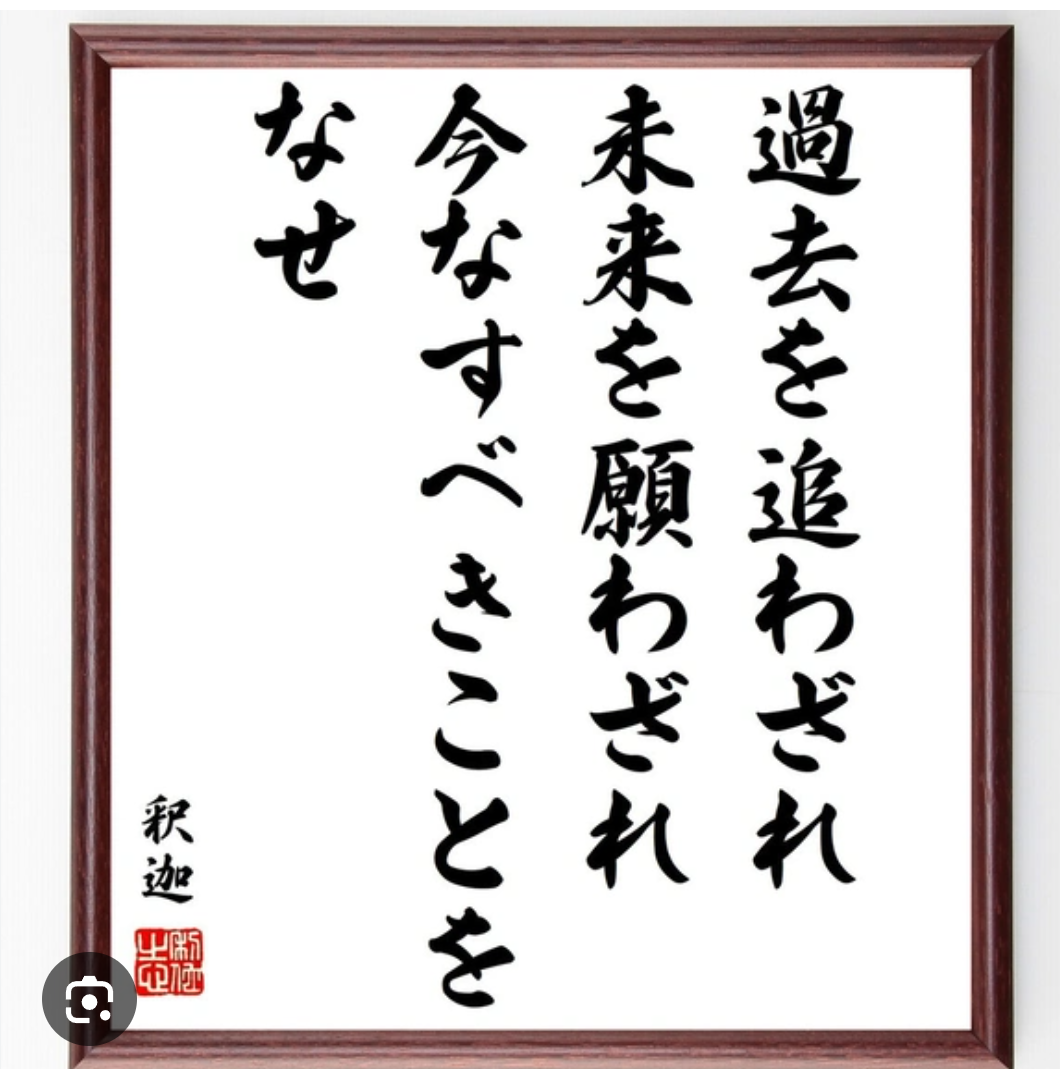 過去を追わざれ
未来を願わざれ
今なすべきことを
なせ
釈迦